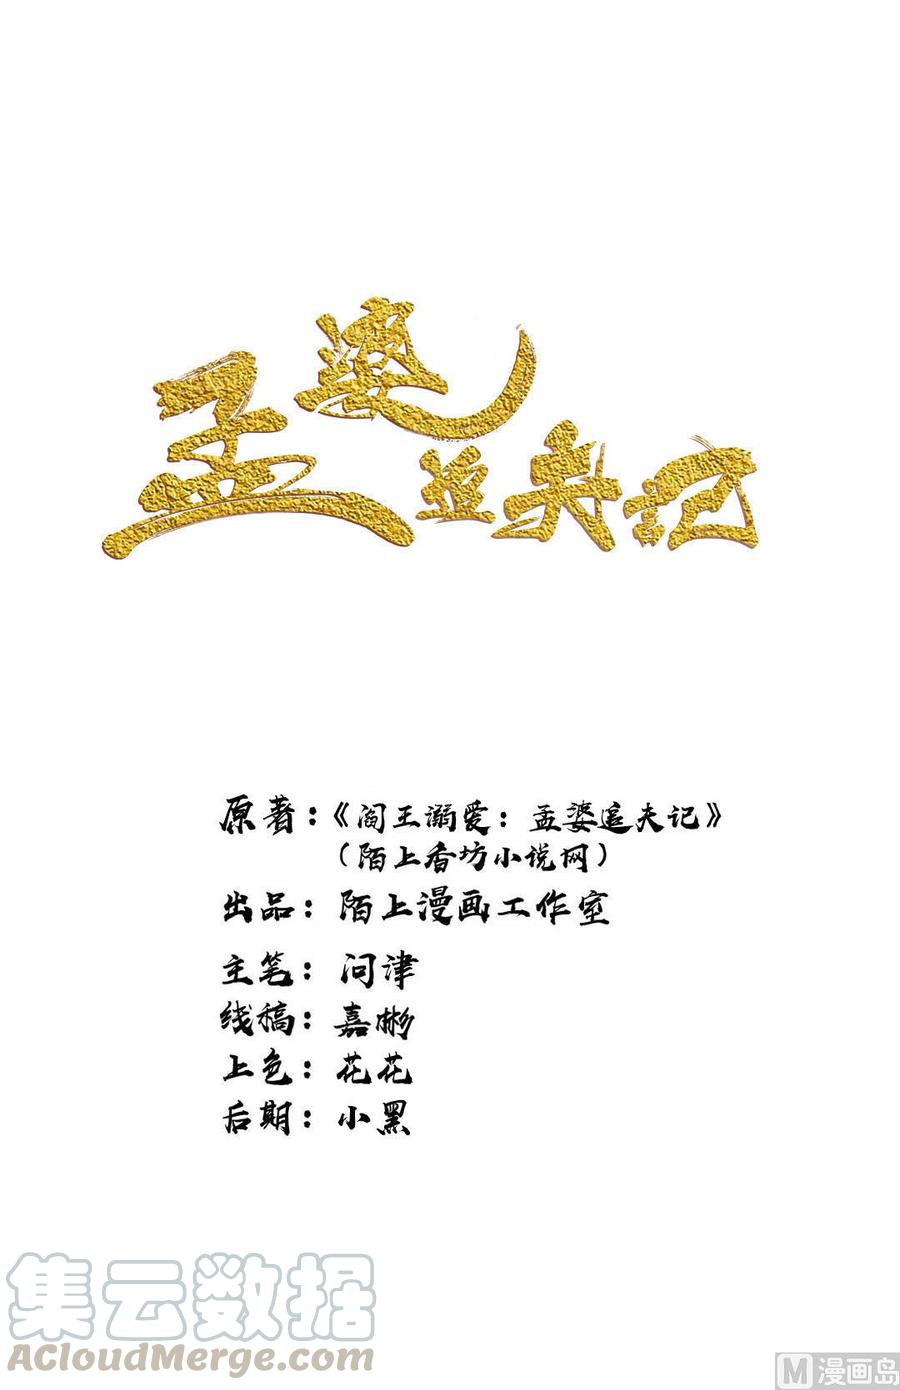 孟婆追夫记
原著：《阎王溺爱：孟婆追夫记》
（陌上香坊小说网）
出品：陌上漫画工作室
主笔：问津
线稿：嘉彬
上色：花花
后期：小黑
集云数据
AcloudMerge.com
M漫画岛